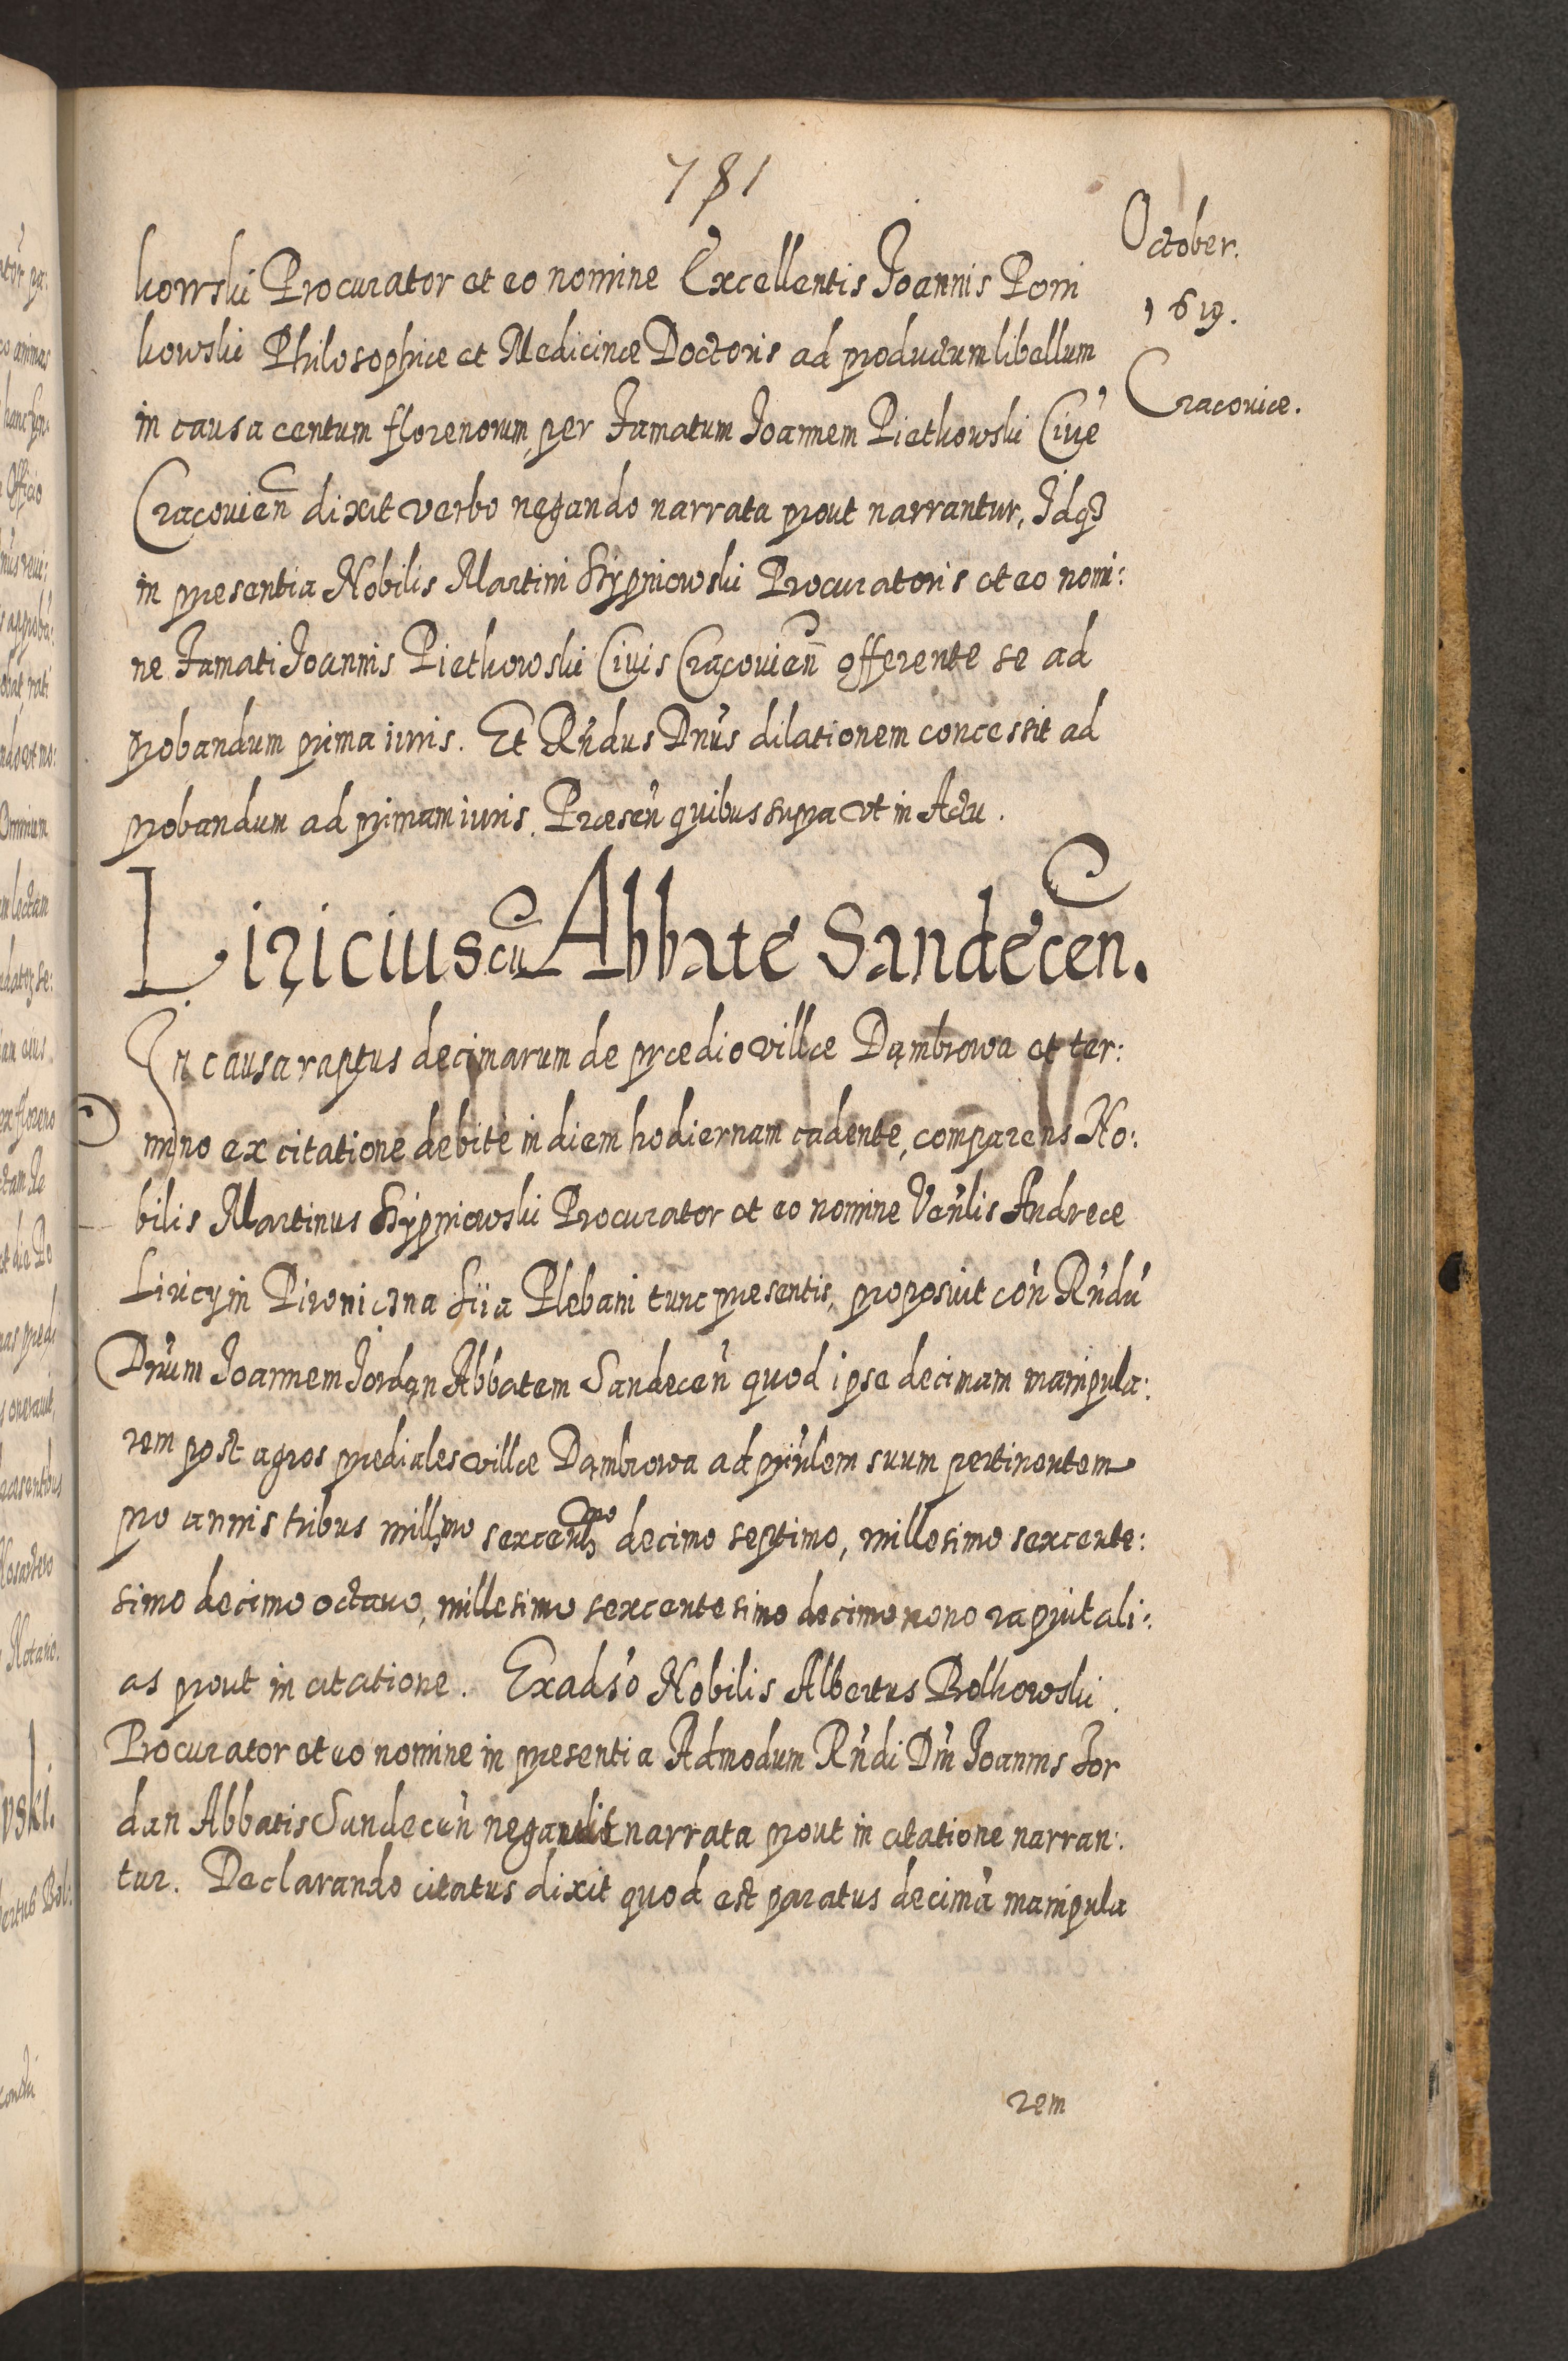 781
October.
1619.
Cracoviæ.
kowski Procurator et eo nomine Excellentis Joannis Poni
kowski Philosophiæ et Medicinæ Doctoris ad productum libellum
in causa centum florenorum per Famatum Joannem Pietkowski Civē
Cracovien̄ dixit verbo negando narrata prout narrantur, Idqꝫ
in præsentia Nobilis Martini Skypniowski Procuratoris et eo nomi:
ne Famati Joannis Pietkowski Civis Cracovien̄ offerente se ad
probandum prima iuris. Et Rn̄dus Dn̄us dilationem concessit ad
probandum ad primam iuris. Præsen̄ quibus supra vt in Actu.
Liricius cū Abbate Sandecen̄.
In causa raptus decimarum de prædio villæ Dąmbrowa et ter:
mino ex citatione debitè in diem hodiernam cadente, comparens No:
bilis Martinus Skypniowski Procurator et eo nomine Ven̄lis Andreæ
Liricy in Pironiczna Plebani tunc præsentis, proposuit con̄ Rn̄dū
Dn̄um Joannem Jordąn Abbatem Sandecen̄ quod ipse decimam manipula:
rem post agros prædiales villæ Dąmbrowa ad pertinentem
pro annis tribus mill̄mo sexcentmo decimo septimo, millesimo sexcente:
simo decimo octauo, millesimo sexcentesimo decimo nono rapuit ali:
as prout in citatione. Ex adūso Nobilis Albertus Bolkowski
Procurator et eo nomine in præsentia Admodum Rn̄di Dn̄i Joannis Jor
dan Abbatis Sandecen̄ negauit narrata prout in citatione narran:
tur. Declarando citatus dixit quod est paratus decimā manipula
rem